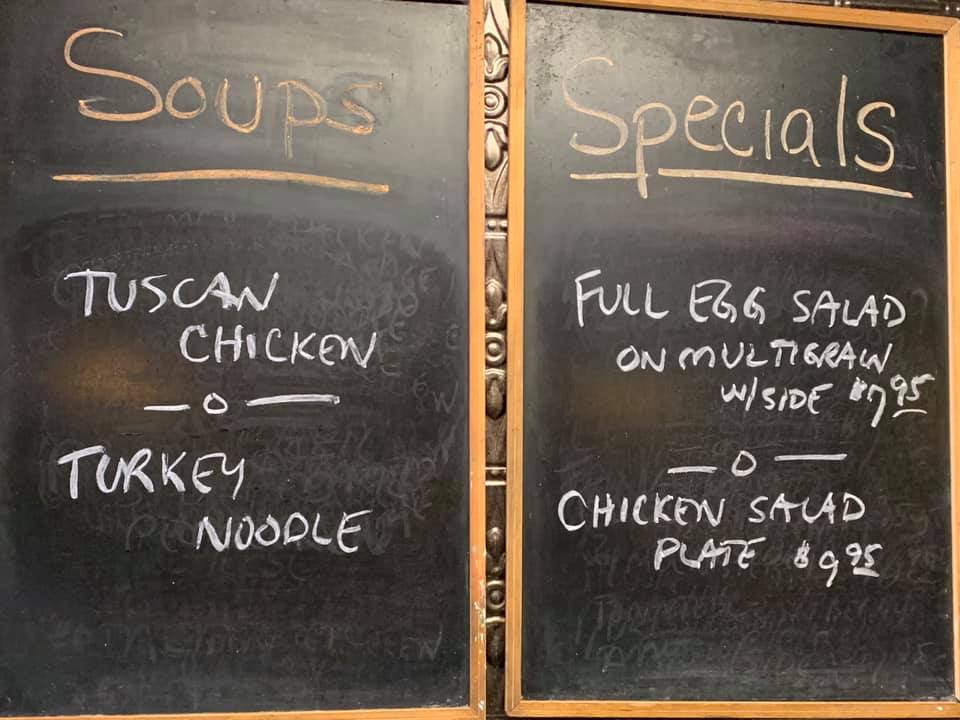 Soups
TUSCAN
CHICKEN
TURKEY
NOODLE
Specials
FULL EGG SALAD
ON MULTIGRAIN
W/SIDE $7 95
CHICKEN SALAD
PLATE $9 95